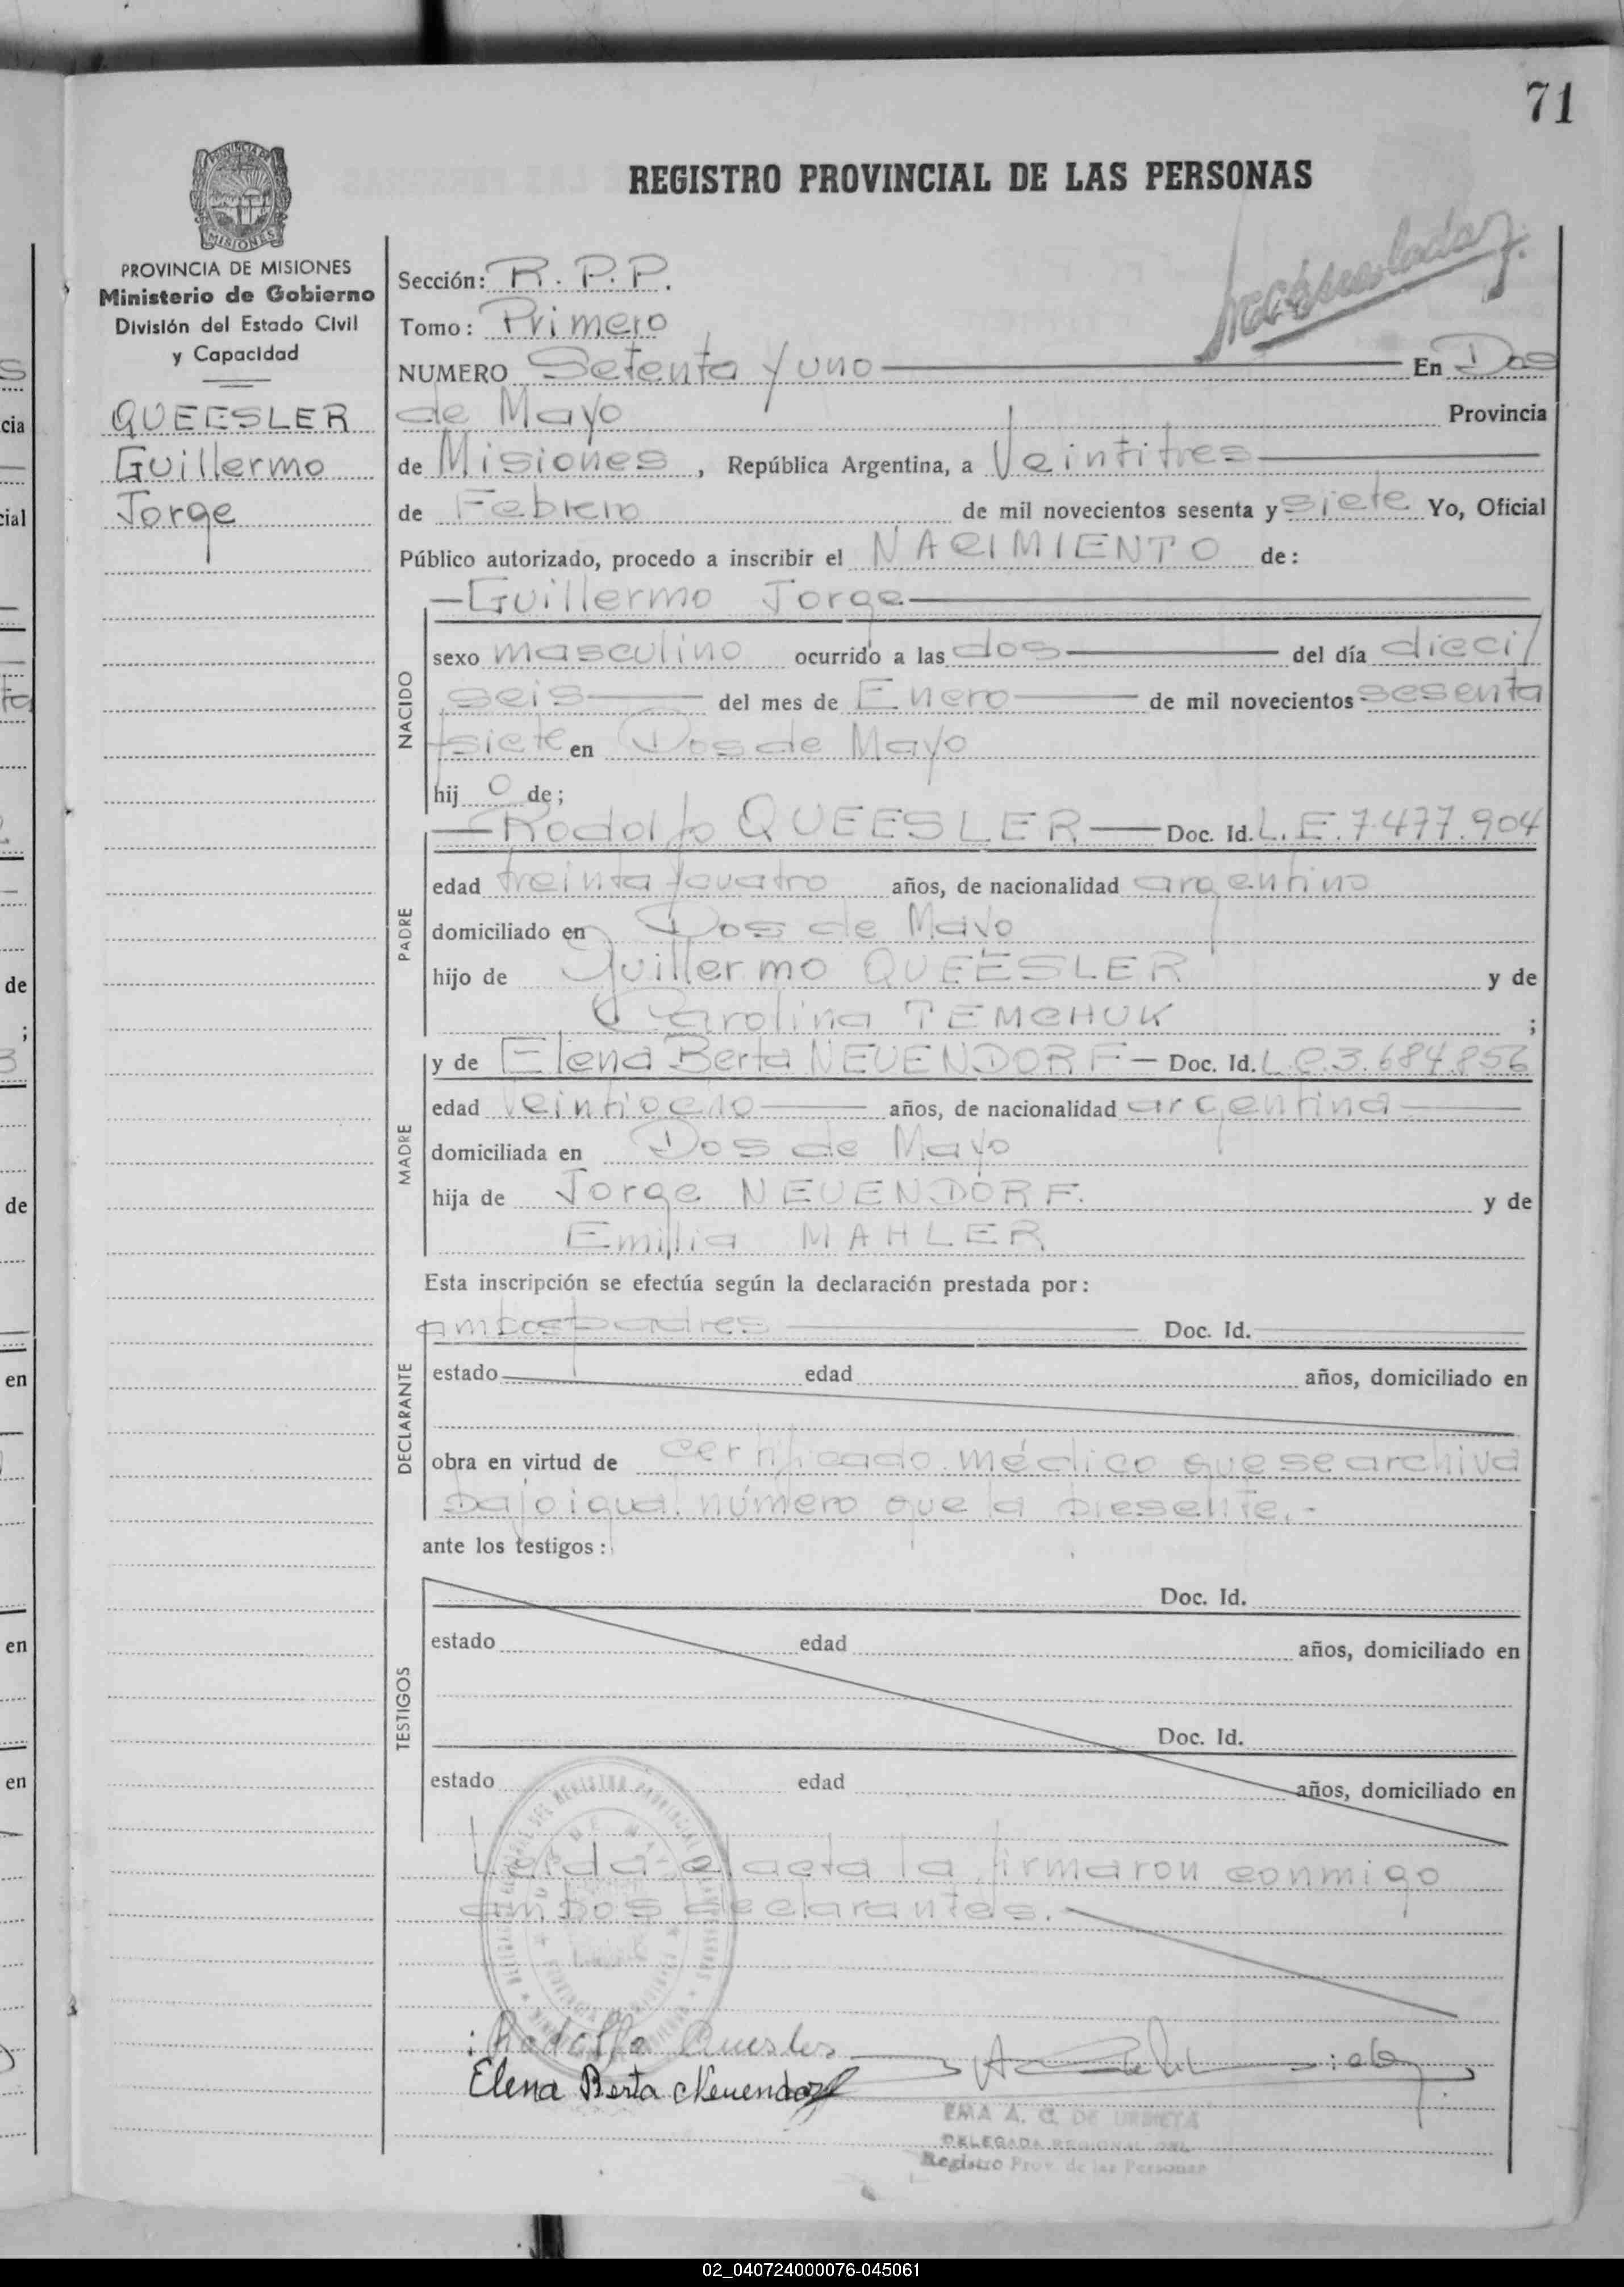 71
REGISTRO PROVINCIAL DE LAS PERSONAS
MISIONES
PROVINCIA DE MISIONES
Ministerio de Gobierno
División del Estado Civil
y Capacidad
QUEESLER
Guillermo
Jorge
Sección: R. P. P.
Tomo: Primero
NUMERO Setenta y uno En Dos
de Mayo Provincia
de Misiones, República Argentina, a Veintitres
de Febrero de mil novecientos sesenta y siete Yo, Oficial
Público autorizado, procedo a inscribir el NACIMIENTO de:
Guillermo Jorge
NACIDO
sexo masculino ocurrido a las dos del día dieci/
seis del mes de Enero de mil novecientos sesenta
y siete en Dos de Mayo
hij o de;
PADRE
Rodolfo QUEESLER Doc. Id. L. E. 7.477.904
edad treinta y cuatro años, de nacionalidad argentino
domiciliado en Dos de Mayo
hijo de Guillermo QUEESLER y de
Carolina TEMCHUK ;
MADRE
y de Elena Berta NEUENDORF Doc. Id. L.C. 3.684.856
edad veintiocho años, de nacionalidad argentina
domiciliada en Dos de Mayo
hija de Jorge NEUENDORF. y de
Emilia MAHLER
Esta inscripción se efectúa según la declaración prestada por:
DECLARANTE
ambos padres Doc. Id.
estado edad años, domiciliado en
obra en virtud de certificado médico que se archiva
bajo igual número que la presente.-
ante los testigos:
TESTIGOS
Doc. Id.
estado edad años, domiciliado en
Doc. Id.
estado edad años, domiciliado en
Leída el acta la firmaron conmigo
ambos declarantes.
Rodolfo Queesler
Elena Berta Neuendorf
EMA A. C. DE URBIETA
DELEGADA REGIONAL DEL
Registro Prov. de las Personas
02_040724000076-045061